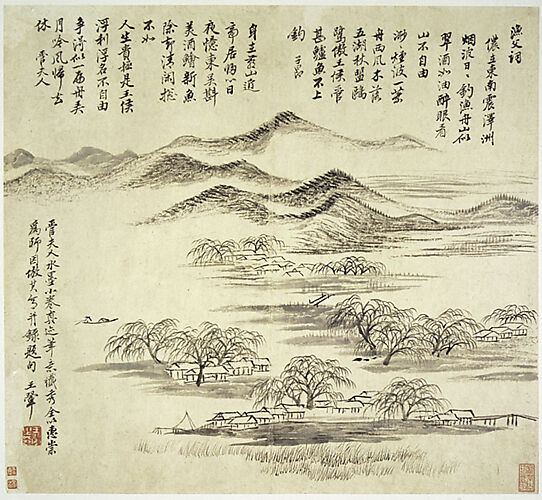 漁父詞
儂住東南震澤洲
烟波日〻釣漁舟山似
翠酒如油醉眼看
山不自由
渺〻煙波一葉
舟西風木落
五湖秋盟鷗
鷺傲王侯管
甚鱸魚不上
鈎 子昂
身在燕山近
帝居歸心日
夜憶東吴斟
美酒膾新魚
除却清閒總
不如
人生貴極是王侯
浮利浮名不自由
爭得似一扁舟弄
月吟風歸去
休 管夫人
管夫人水墨小卷真迹筆意纖秀全以惠崇
為師因倣其寫并錄題句 王翬